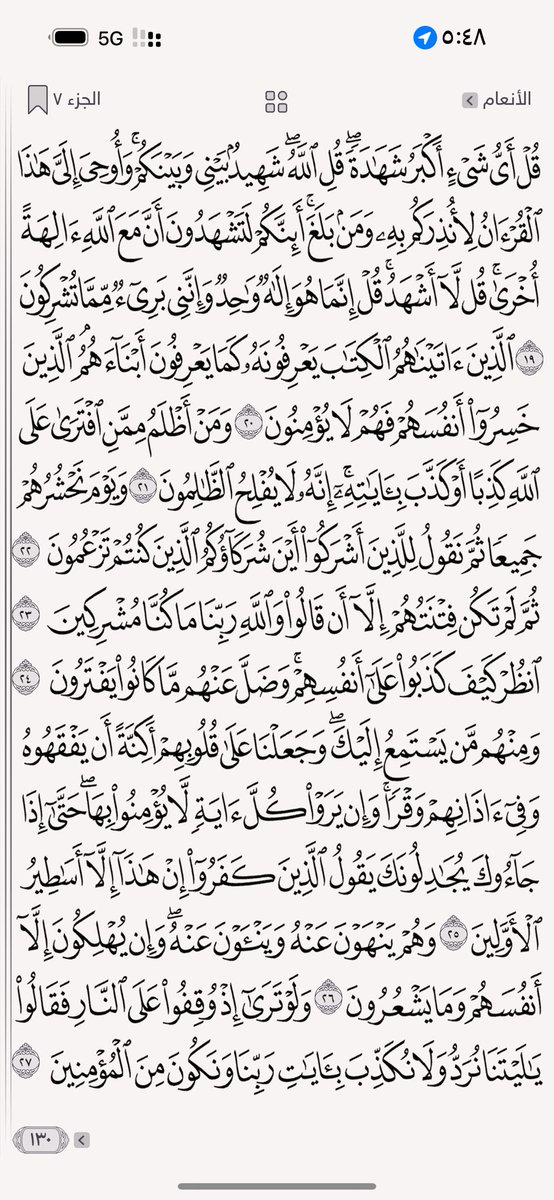 ٥:٤٨ 5G
الأنعام الجزء ٧
قُلْ أَىُّ شَىْءٍ أَكْبَرُ شَهَـٰدَةً ۖ قُلِ ٱللَّهُ ۖ شَهِيدٌۢ بَيْنِى وَبَيْنَكُمْ ۚ وَأُوحِىَ إِلَىَّ هَـٰذَا
ٱلْقُرْءَانُ لِأُنذِرَكُم بِهِۦ وَمَنۢ بَلَغَ ۚ أَئِنَّكُمْ لَتَشْهَدُونَ أَنَّ مَعَ ٱللَّهِ ءَالِهَةً
أُخْرَىٰ ۚ قُل لَّآ أَشْهَدُ ۚ قُلْ إِنَّمَا هُوَ إِلَـٰهٌ وَٰحِدٌ وَإِنَّنِى بَرِىٓءٌ مِّمَّا تُشْرِكُونَ
١٩ ٱلَّذِينَ ءَاتَيْنَـٰهُمُ ٱلْكِتَـٰبَ يَعْرِفُونَهُۥ كَمَا يَعْرِفُونَ أَبْنَآءَهُمُ ۘ ٱلَّذِينَ
خَسِرُوٓا۟ أَنفُسَهُمْ فَهُمْ لَا يُؤْمِنُونَ ٢٠ وَمَنْ أَظْلَمُ مِمَّنِ ٱفْتَرَىٰ عَلَى
ٱللَّهِ كَذِبًا أَوْ كَذَّبَ بِـَٔايَـٰتِهِۦٓ ۗ إِنَّهُۥ لَا يُفْلِحُ ٱلظَّـٰلِمُونَ ٢١ وَيَوْمَ نَحْشُرُهُمْ
جَمِيعًا ثُمَّ نَقُولُ لِلَّذِينَ أَشْرَكُوٓا۟ أَيْنَ شُرَكَآؤُكُمُ ٱلَّذِينَ كُنتُمْ تَزْعُمُونَ ٢٢
ثُمَّ لَمْ تَكُن فِتْنَتُهُمْ إِلَّآ أَن قَالُوا۟ وَٱللَّهِ رَبِّنَا مَا كُنَّا مُشْرِكِينَ ٢٣
ٱنظُرْ كَيْفَ كَذَبُوا۟ عَلَىٰٓ أَنفُسِهِمْ ۚ وَضَلَّ عَنْهُم مَّا كَانُوا۟ يَفْتَرُونَ ٢٤
وَمِنْهُم مَّن يَسْتَمِعُ إِلَيْكَ ۖ وَجَعَلْنَا عَلَىٰ قُلُوبِهِمْ أَكِنَّةً أَن يَفْقَهُوهُ
وَفِىٓ ءَاذَانِهِمْ وَقْرًا ۚ وَإِن يَرَوْا۟ كُلَّ ءَايَةٍ لَّا يُؤْمِنُوا۟ بِهَا ۖ حَتَّىٰٓ إِذَا
جَآءُوكَ يُجَـٰدِلُونَكَ يَقُولُ ٱلَّذِينَ كَفَرُوٓا۟ إِنْ هَـٰذَآ إِلَّآ أَسَـٰطِيرُ
ٱلْأَوَّلِينَ ٢٥ وَهُمْ يَنْهَوْنَ عَنْهُ وَيَنْـَٔوْنَ عَنْهُ ۖ وَإِن يُهْلِكُونَ إِلَّآ
أَنفُسَهُمْ وَمَا يَشْعُرُونَ ٢٦ وَلَوْ تَرَىٰٓ إِذْ وُقِفُوا۟ عَلَى ٱلنَّارِ فَقَالُوا۟
يَـٰلَيْتَنَا نُرَدُّ وَلَا نُكَذِّبَ بِـَٔايَـٰتِ رَبِّنَا وَنَكُونَ مِنَ ٱلْمُؤْمِنِينَ ٢٧
١٣٠